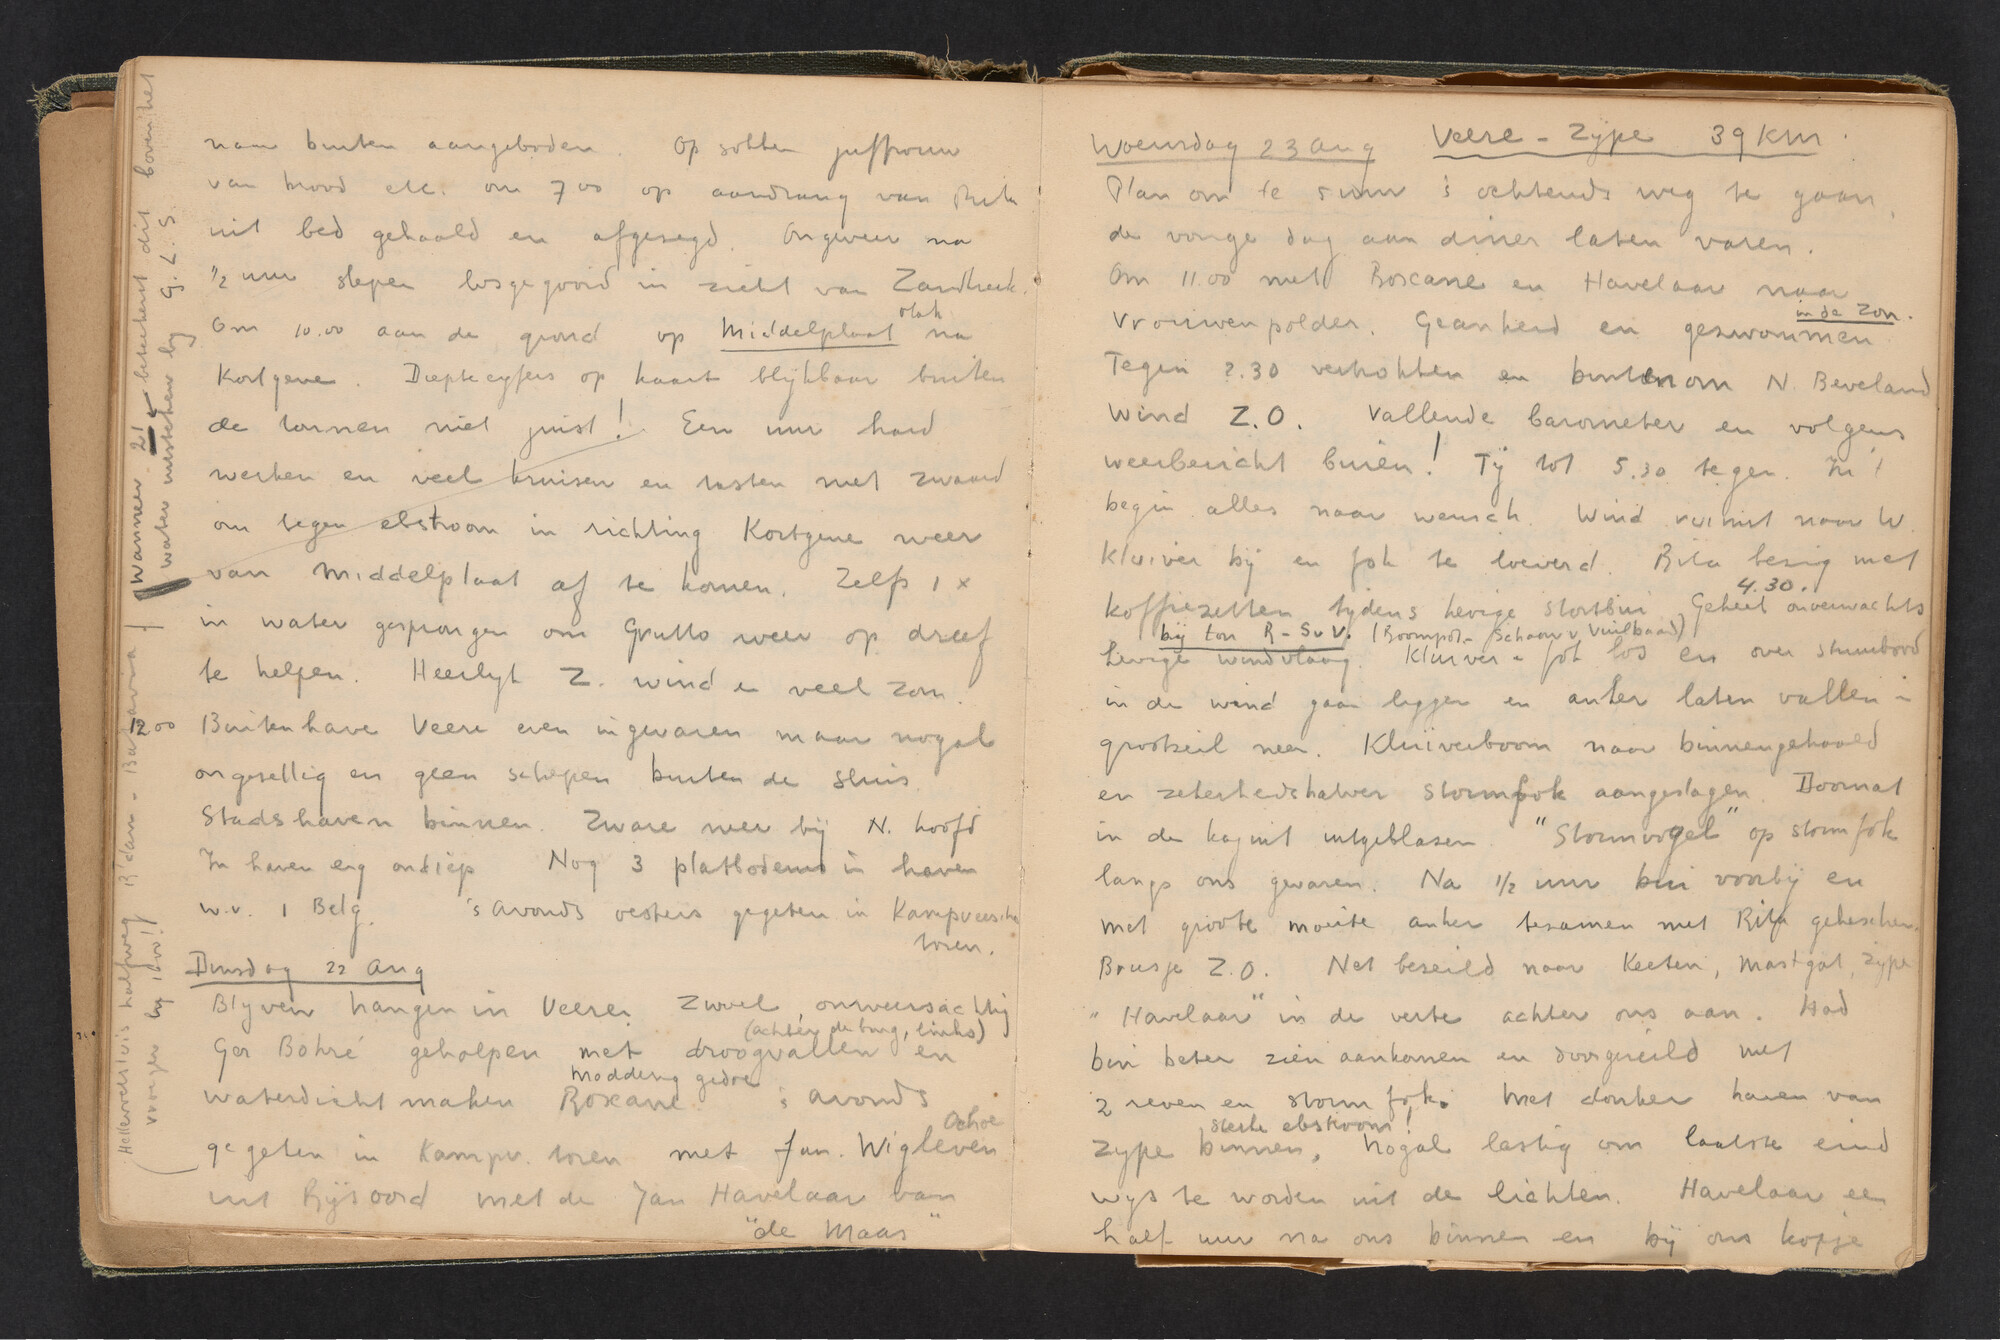 naar buiten aangeboden. Op sokken juffrouw
van brood etc. om 7 00 op aandrang van Rita
uit bed gehaald en afgezegd. Ongeveer na
1/2 uur slepen losgegooid in zicht van Zandkreek.
Om 10.00 aan de grond op Middelplaat vlak na
Kortgene. Dieptecyfers op kaart blijkbaar buiten
de tonnen niet juist! Een uur hard
werken en veel kruisen en tasten met zwaard
om tegen ebstroom in richting Kortgene weer
van Middelplaat af te komen. Zelfs 1 x
in water gesprongen om Grutto weer op dreef
te helpen. Heerlyk Z. wind en veel zon.
12 00 Buitenhave Veere even ingevaren maar nogal
ongezellig en geen schepen buiten de sluis
Stadshaven binnen. Zware neer bij N. hoofd
In haven erg ondiep Nog 3 platbodems in haven
w.v. 1 Belg. 's Avonds oesters gegeten in Kampveersche
toren.
Dinsdag 22 Aug
Blyven hangen in Veere. Zwoel, onweersachtig
(achter de burg, links)
Ger Bohré geholpen met droogvallen en
modderig gedoe
waterdicht maken Roxane 's avonds
gegeten in Kampv. toren met Jan. Wigleven
uit Rijsoord met de Jan Havelaar van
"de Maas"
Wanneer 21 betekent dit boven het
water uitsteken by G.L.S.
Hellevoetsluis halfweg R'dam -
vroeger by
Woensdag 23 Aug Veere - Zype 39 KM.
Plan om te 5 uur 's ochtends weg te gaan,
de vorige dag aan diner laten varen.
Om 11.00 met Roxane en Havelaar naar
Vrouwenpolder. Geankerd en gezwommen in de zon.
Tegen 2.30 vertrokken en buitenom N. Beveland
Wind Z.O. Vallende barometer en volgens
weerbericht buien! Tij tot 5.30 tegen. In 't
begin alles naar wensch. Wind ruimt naar W.
Kluiver bij en fok te loevert. Rita bezig met
koffiezetten tydens hevige stortbui 4.30. Geheel onverwachts
bij ton R-SvV. (Roompot - Schaar v. Vuilbaard)
hevige windvlaag. Kluiver - fok los en over stuurboord
in de wind gaan liggen en anker laten vallen -
grootzeil neer. Kluiverboom naar binnengehaald
en zekerheidshalver stormfok aangeslagen. Doornat
in de kajuit uitgeblazen. "Stormvogel" op stormfok
langs ons gevaren. Na 1/2 uur bui voorbij en
met groote moeite anker tezamen met Rita geheschen.
Briesje Z.O. Net bezeild naar Keeten, Mastgat, Zype
"Havelaar" in de verte achter ons aan. Had
bui beter zien aankomen en doorgezeild met
2 reven en stormfok. Met donker haven van
sterke ebstroom!
Zype binnen, nogal lastig om laatste eind
wys te worden uit de lichten. Havelaar een
half uur na ons binnen en bij ons kopje